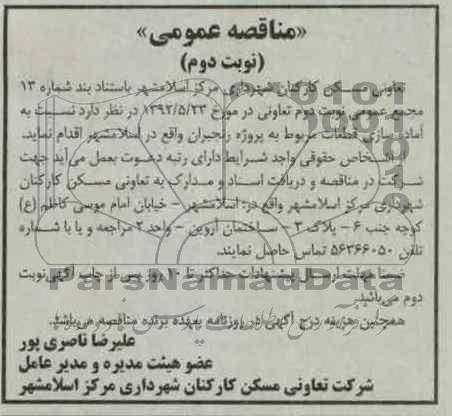 «مناقصه عمومی»
(نوبت دوم)
تعاونی مسکن کارکنان شهرداری مرکز اسلامشهر باستناد بند شماره ۱۳
مجمع عمومی نوبت دوم تعاونی در مورخ ۱۳۹۲/۵/۲۳ در نظر دارد نسبت به
آماده سازی قطعات مربوط به پروژه رنجبران واقع در اسلامشهر اقدام نماید.
از اشخاص حقوقی واجد شرایط دارای رتبه دعوت بعمل می آید جهت
شرکت در مناقصه و دریافت اسناد و مدارک به تعاونی مسکن کارکنان
شهرداری مرکز اسلامشهر واقع در: اسلامشهر - خیابان امام موسی کاظم (ع)
کوچه جنب ۶ - پلاک ۳ - ساختمان آروین - واحد ۲ مراجعه و یا با شماره
تلفن ۵۶۳۶۶۰۵۰ تماس حاصل نمایند.
ضمنا مهلت ارسال پیشنهادات حداکثر تا ۱۰ روز پس از چاپ آگهی نوبت
دوم می باشد.
همچنین هزینه درج آگهی در روزنامه بعهده برنده مناقصه می باشد.
علیرضا ناصری پور
عضو هیئت مدیره و مدیر عامل
شرکت تعاونی مسکن کارکنان شهرداری مرکز اسلامشهر
ParsNamadData